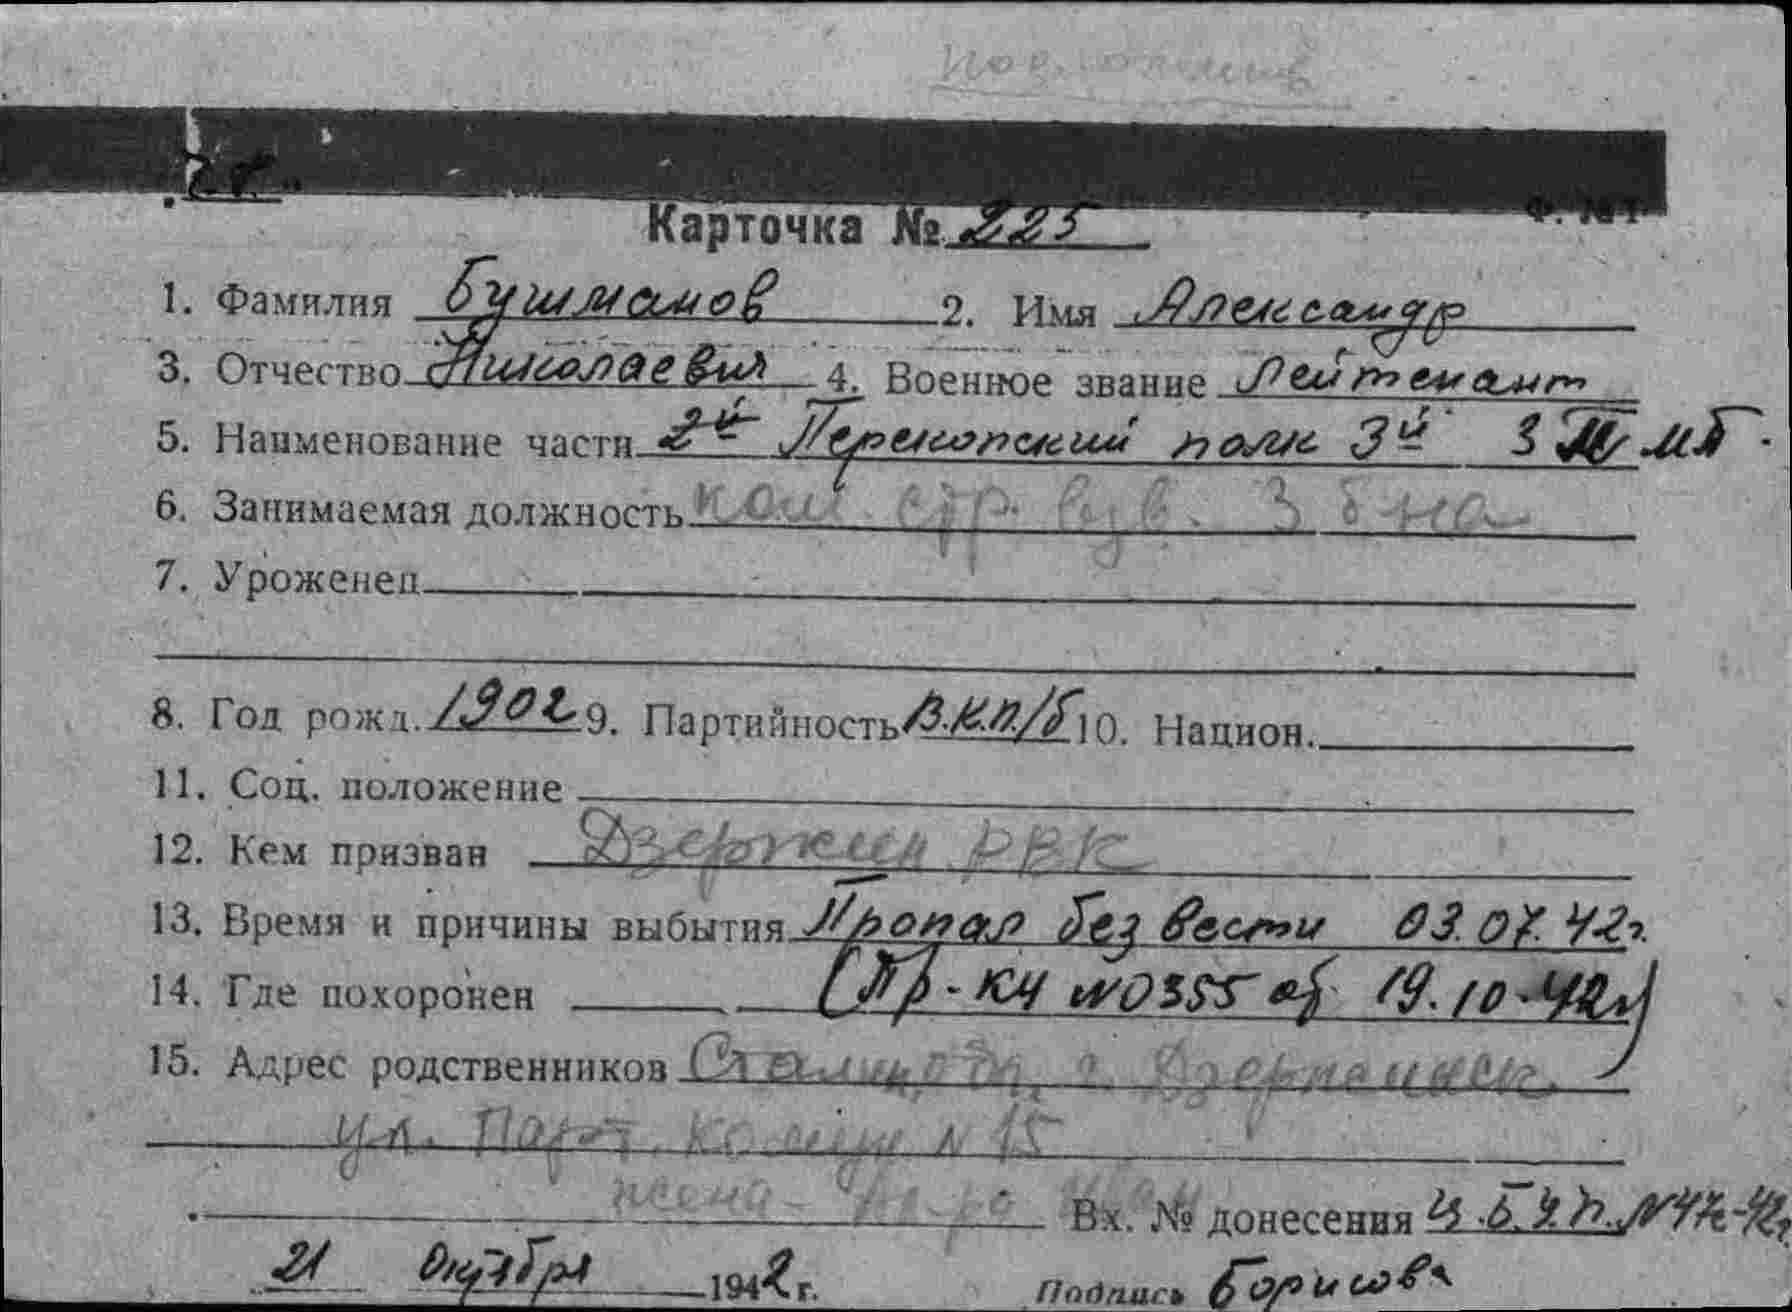 Ф. №1
Карточка № 225
1. Фамилия Бушманов 2. Имя Александр
3. Отчество Николаевич 4. Военное звание Лейтенант
5. Наименование части 2й Перекопский полк 3й МБ
6. Занимаемая должность ком. стр. взв. 3 б-на
7. Уроженец
8. Год рожд. 1902 9. Партийность В.К.П./б 10. Национ.
11. Соц. положение
12. Кем призван Дзержин РВК
13. Время и причины выбытия Пропал без вести 03.07.42г.
14. Где похоронен (Пр-КЧ №0355 от 19.10.42г)
15. Адрес родственников Сталин. г. Дзержинск
ул. Пар. Комун N 15
жена-
Вх. № донесения
21 Октября 1942 г. Подпись Борисова